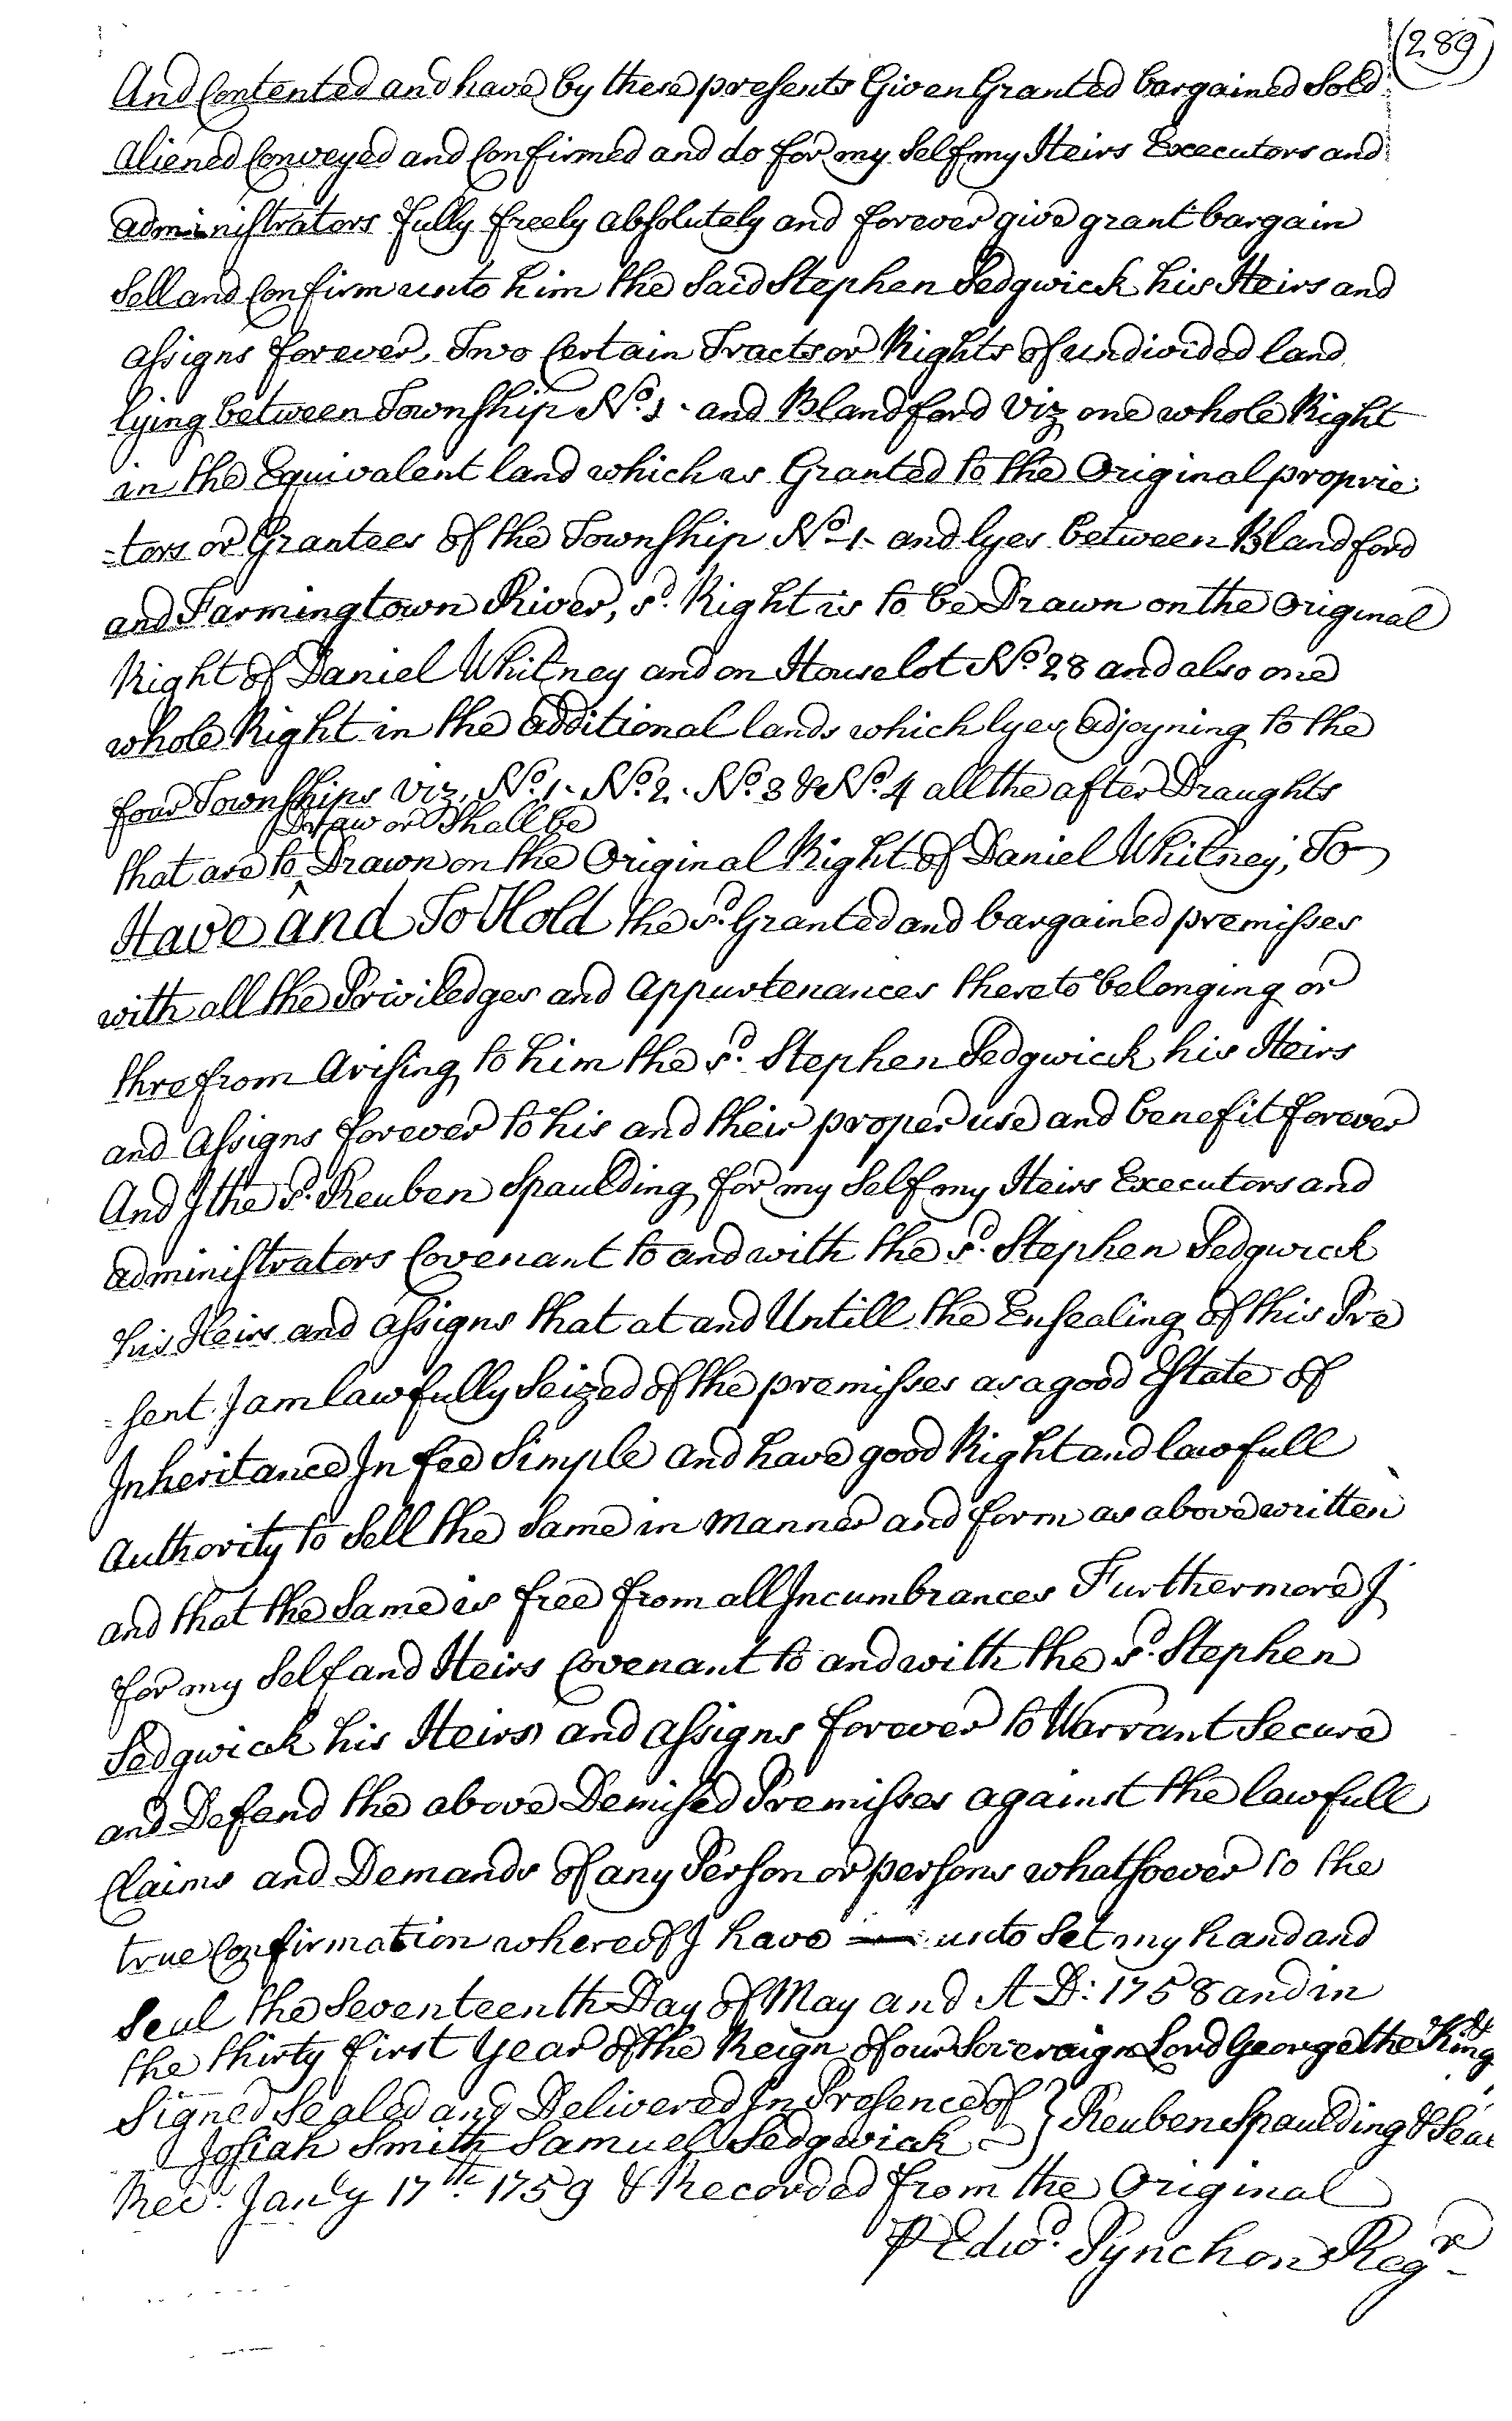 (289)
And Contented and have by these presents Given Granted bargained Sold
aliened Conveyed and Confirmed and do for my Self my Heirs Executors and
administrators fully freely absolutely and forever give grant bargain
Sell and Confirm unto him the Said Stephen Sedgwick his Heirs and
assigns forever, Two Certain Tracts or Rights of undivided land
lying between Township No. 1 - and Blandford Viz one whole Right
in the Equivalent land which is Granted to the Original proprie
-tors or Grantees of the Township No. 1- and lyes between Blandford
and Farmingtown River, sd. Right is to be Drawn on the Original
Right of Daniel Whitney and on House lot No. 28 and also one
whole Right in the additional lands which lyes adjoyning to the
four Townships Viz. No. 1- No. 2. No. 3 & No. 4 all the after Draughts
Draw or Shall be
that are to ^ Drawn on the Original Right of Daniel Whitney; To
Have and To Hold the sd. Granted and bargained premisses
with all the Priviledges and appurtenances thereto belonging or
threfrom Arising to him the sd. Stephen Sedgwick his Heirs
and assigns forever to his and their proper use and benefit forever
And I the sd. Reuben Spaulding for my Self my Heirs Executors and
administrators Covenant to and with the sd. Stephen Sedgwick
his Heirs and assigns that at and Untill the Ensealing of this Pre
-sent I am lawfully Seized of the premisses as a good Estate of
Inheritance In fee Simple and have good Right and lawfull
Authority to Sell the Same in manner and form as above written
and that the Same is free from all Incumbrances Furthermore I
for my Self and Heirs Covenant to and with the sd. Stephen
Sedgwick his Heirs and assigns forever to Warrant Secure
and Defend the above Demised Premisses against the lawfull
Claims and Demands of any Person or persons whatsoever to the
true Confirmation whereof I have unto Set my hand and
Seal the Seventeenth Day of May and A D: 1758 and in
the thirty first Year of the Reign of our Sovereign Lord George the 2d King
Signed Sealed and Delivered In Presence of } Reuben Spaulding & Seal
Josiah Smith Samuel Sedgwick
Recd. Jany 17th. 1759 & Recorded from the Original
P Edwd. Pynchon Regr